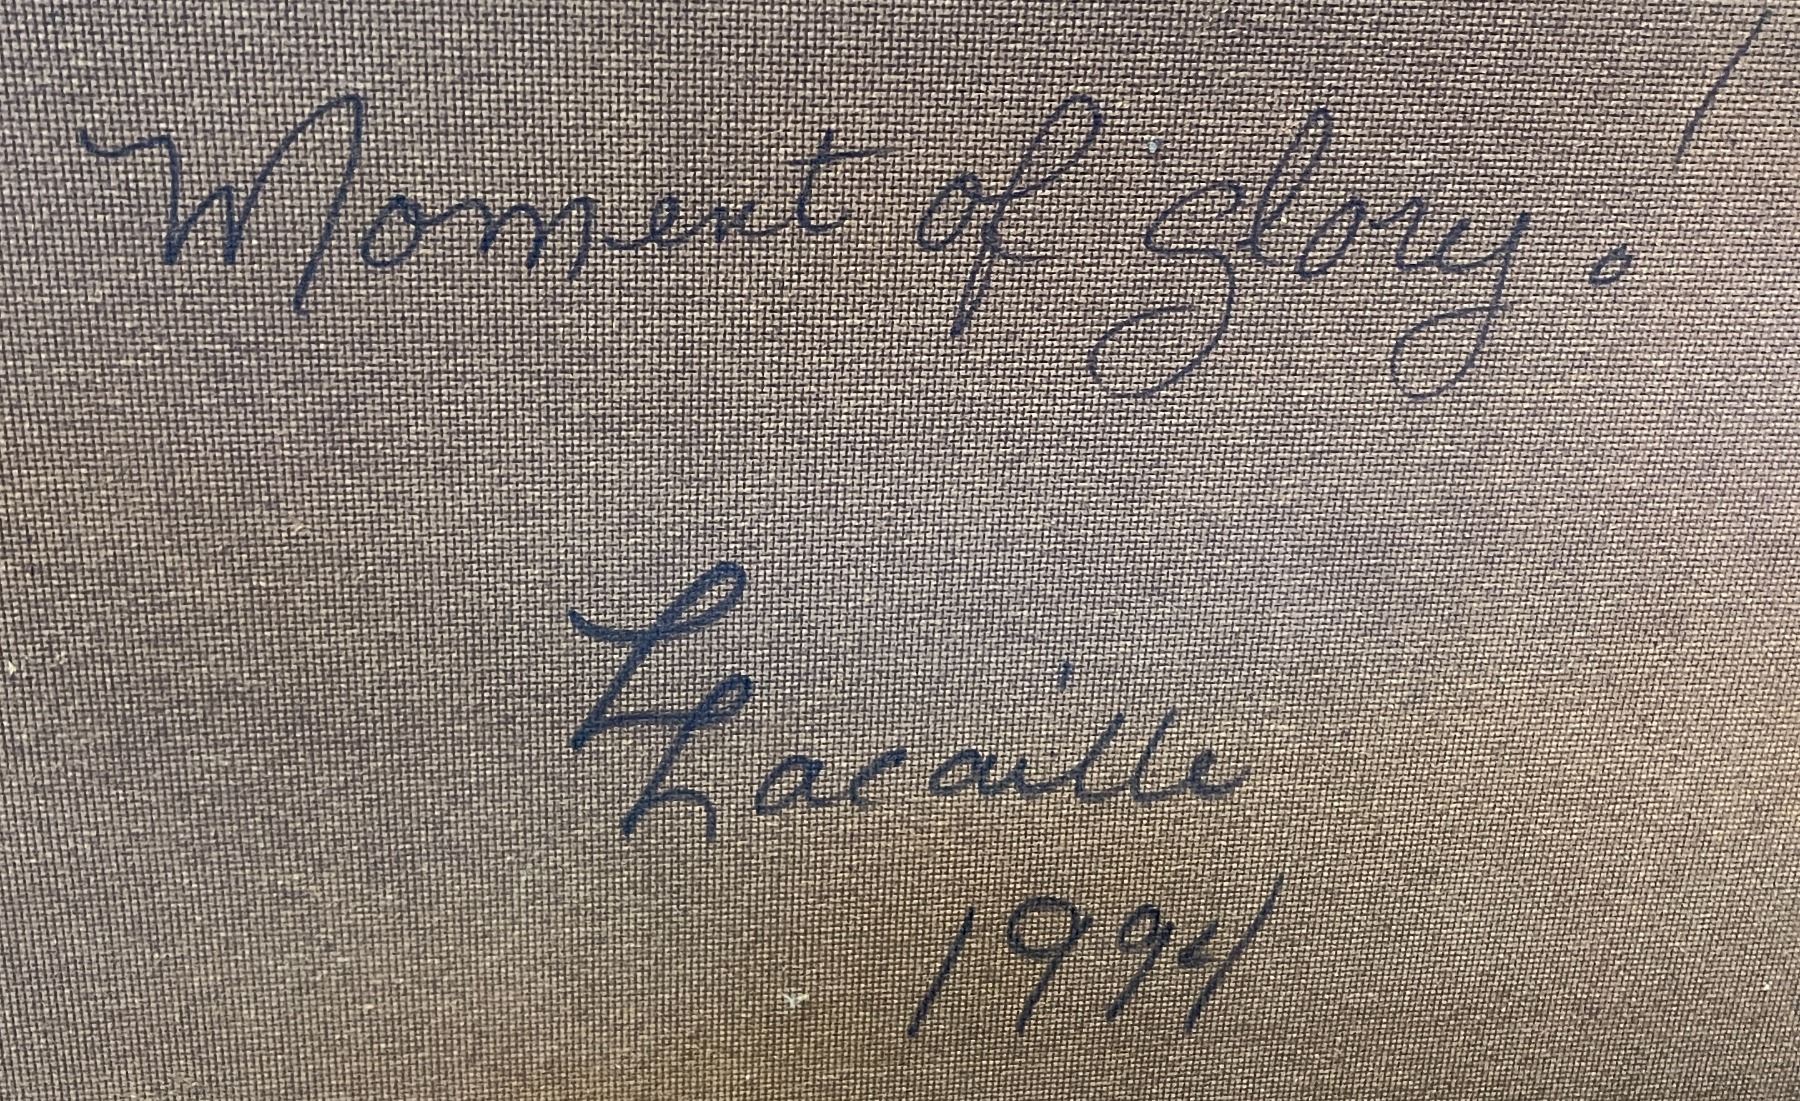 Moment of glory!
L Lacaille
1994